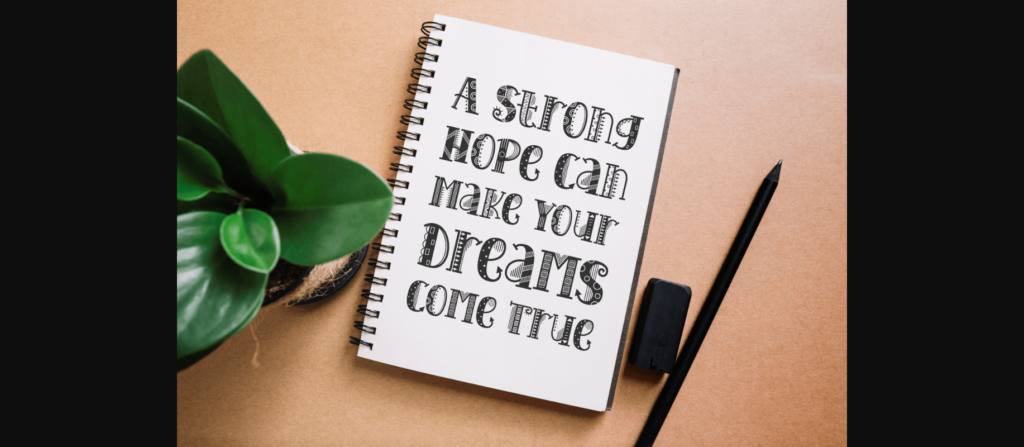 A Strong
Hope Can
Make Your
Dreams
Come True